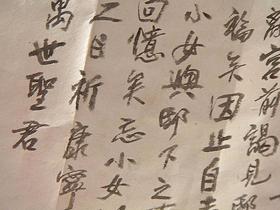 宮前謁見邸
福矣因止自
小女與邸下之
回憶矣忘小女
之日祈康寧
萬世聖君